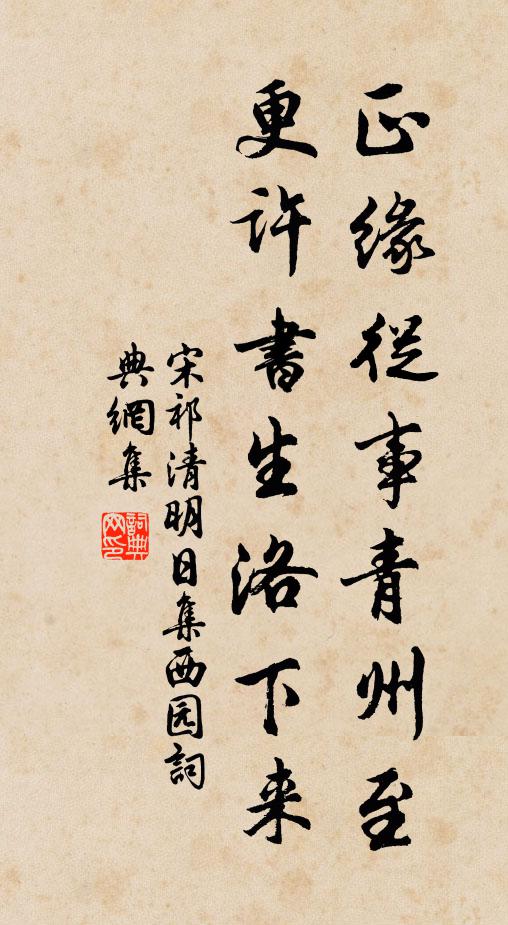 正緣從事青州至
更許書生洛下来
宋祁清明日集西园詞
典網集
詞典
网印